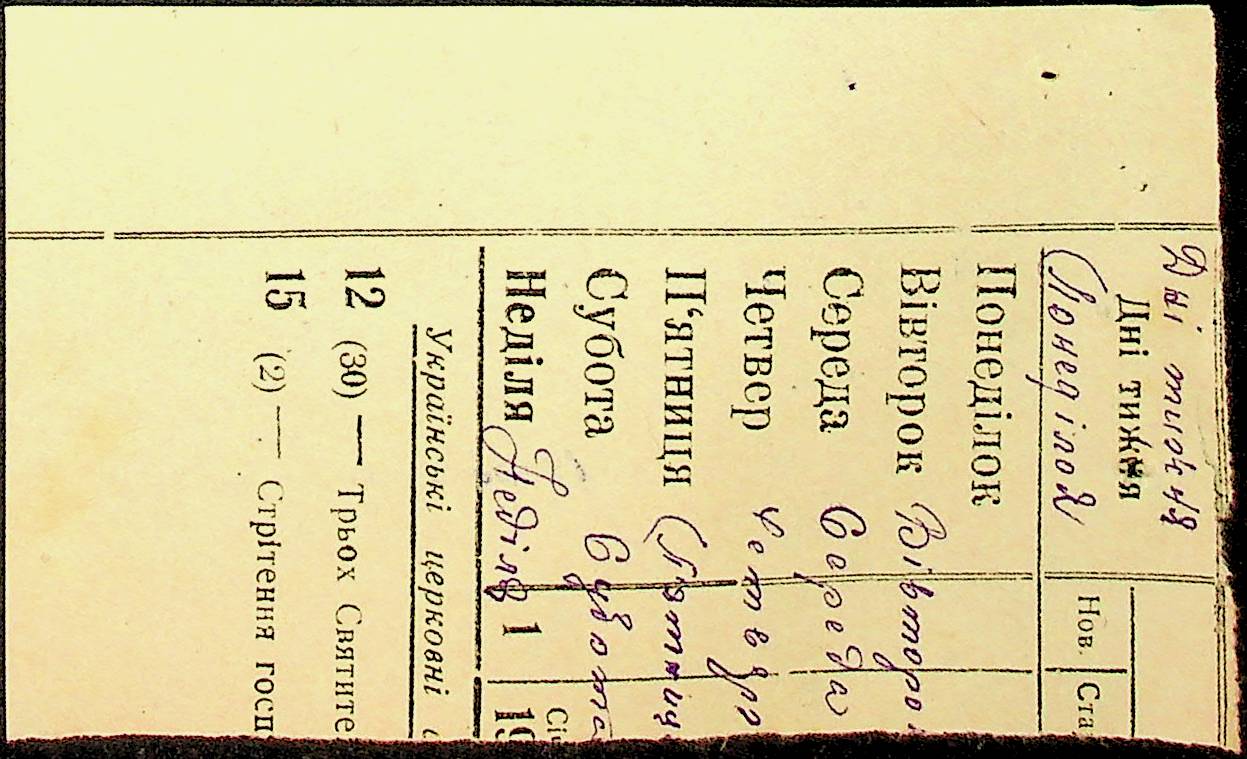 Дні тижня
Дні тижня
Нов. Ста
Понеділок
Понеділок
Вівторок Вівторо
Середа Середа
Четвер Четвер
П'ятниця Пятниц
Субота Субота
Січ
Неділя Неділя 1 19
Українські церковні
12 (30) — Трьох Святите
15 (2) — Стрітення госп